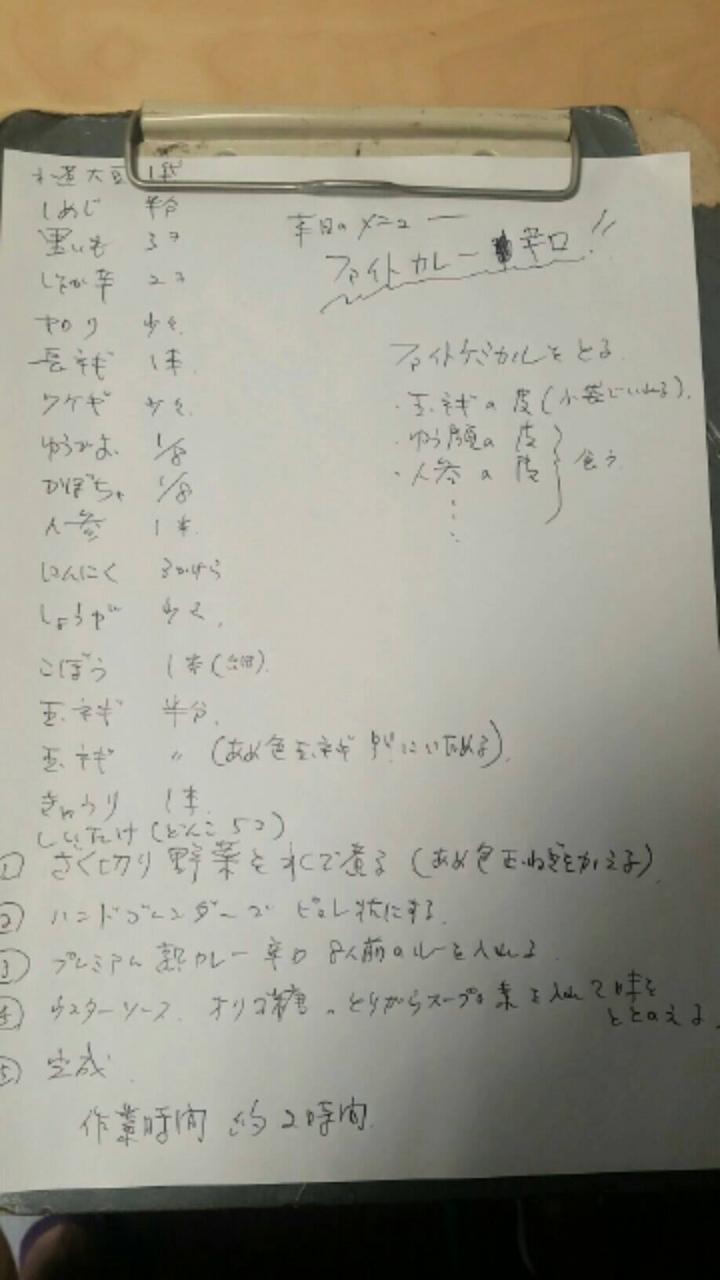 水煮大豆 1袋
しめじ 半分
里いも 3コ
ししとう辛 2コ
セロリ 少々
長ネギ 1本
ワケギ 少々
ゆうがお 1/8
かぼちゃ 1/8
人参 1本
にんにく 3かけら
しょうが 少々
ごぼう 1本(細)
玉ネギ 半分
玉ネギ 〃 (あめ色玉ネギ 用にいためる)
きゅうり 1本
しいたけ(どんこ 5コ)
本日のメニュー
ファイトカレー 辛口!!
ファイトケミカルをとる
・玉ネギの皮(小袋でいれる)
・ゆう顔の皮
・人参の皮
① ざく切り野菜を水で煮る(あめ色玉ねぎをかえる)
② ハンドブレンダーでピュレ状にする
③ プレミアム熟カレー辛口 8人前のルーを入れる
④ ウスターソース、オリゴ糖、とりがらスープの素を入れて味を
ととのえる
⑤ 完成
作業時間 約2時間